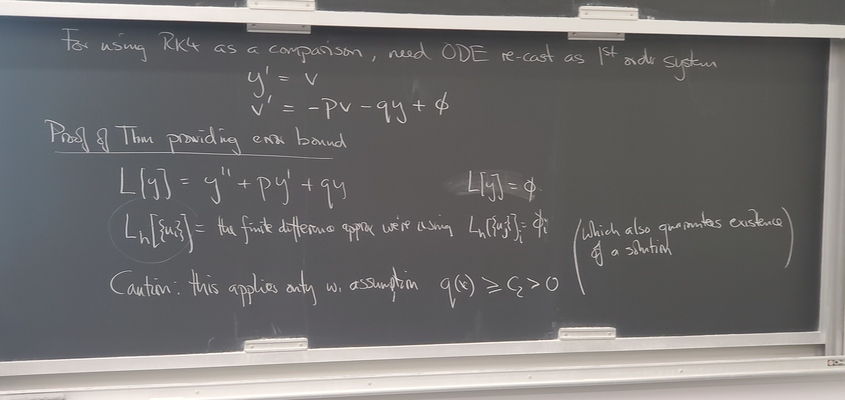 For using RK4 as a comparison, need ODE re-cast as 1st order system
y' = v
v' = -pv - qy + ϕ
Proof of Thm providing error bound
L[y] = y'' + py' + qy L[y] = ϕ
L_h[{u_j}] = the finite difference approx we're using L_h[{u_j}]_i = ϕ_i (which also guarantees existence
of a solution)
Caution: this applies only w. assumption q(x) ≥ C₂ > 0